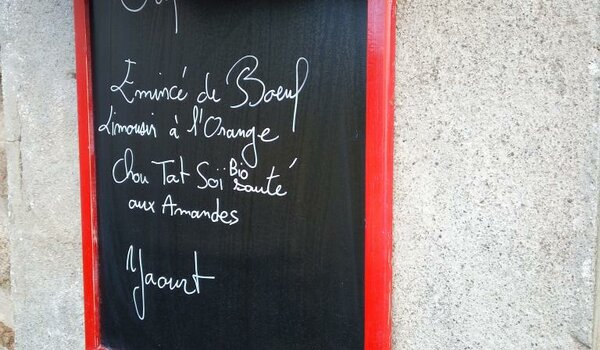 Emincé de Boeuf
Limousin à l'Orange
Chou Tat Soï Bio sauté
aux Amandes
Yaourt